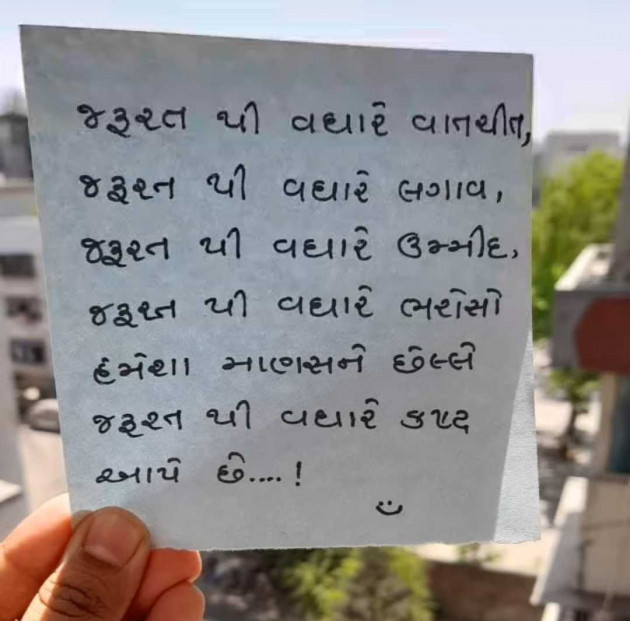 જરૂરત થી વધારે વાતચીત,
જરૂરત થી વધારે લગાવ,
જરૂરત થી વધારે ઉમ્મીદ,
જરૂરત થી વધારે ભરોસો
હંમેશા માણસને છેલ્લે
જરૂરત થી વધારે કષ્ટ
આપે છે....!